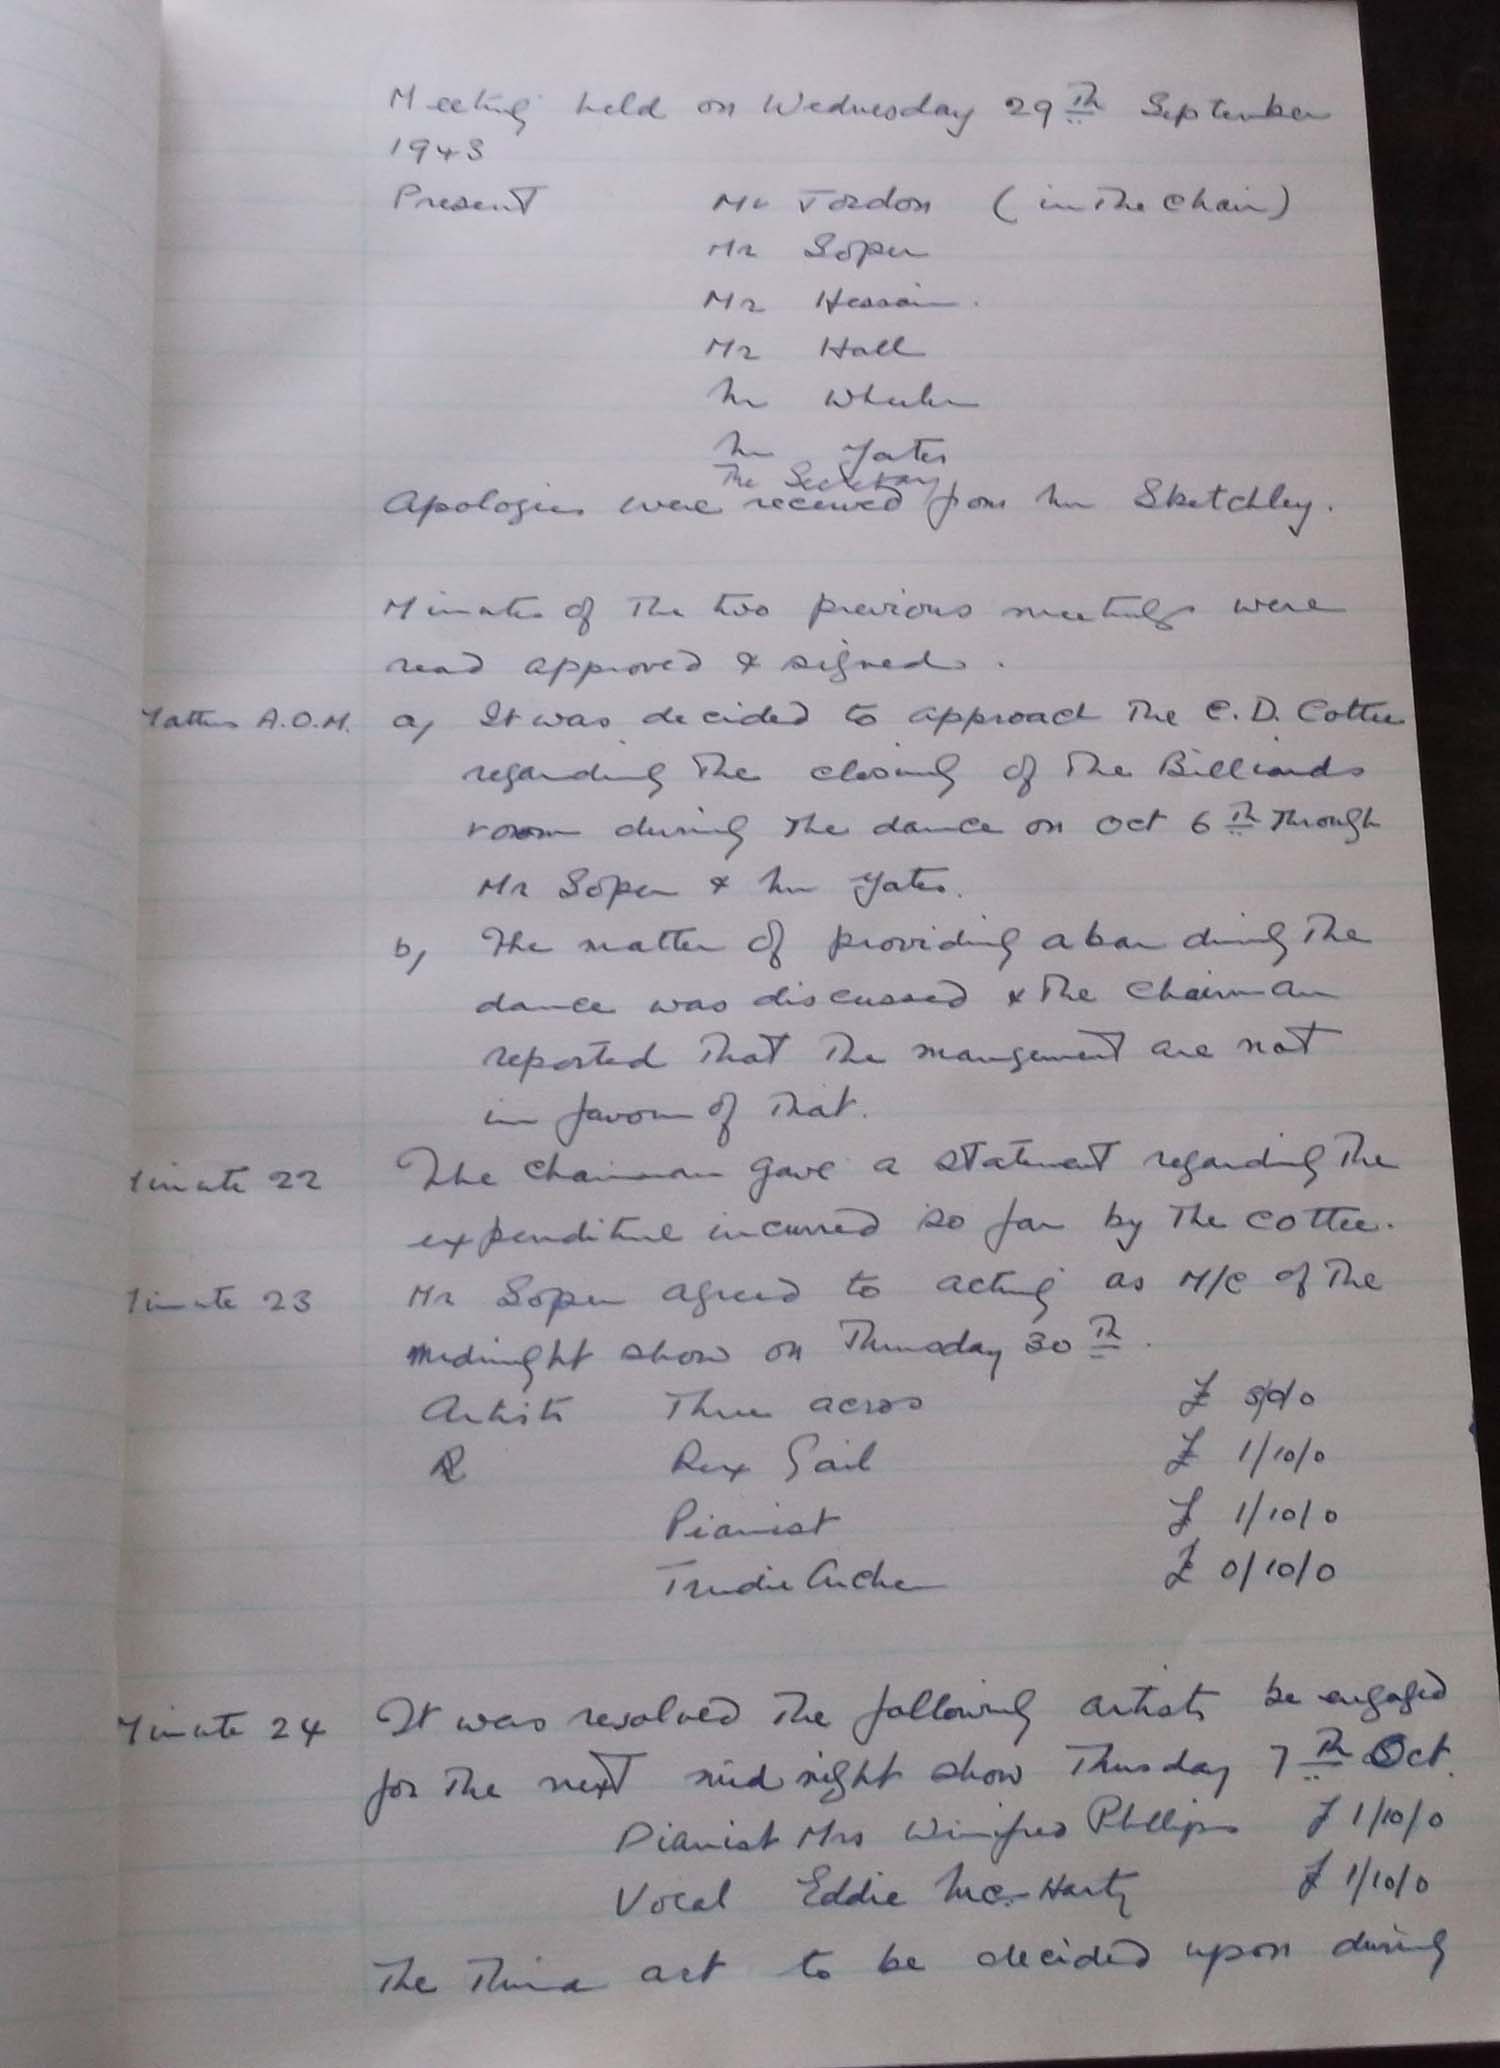 Meeting held on Wednesday 29th September
1943
Present Mr Jordon (in the Chair)
Mr Soper
Mr Hessain.
Mr Hall
Mr Wheeler
Mr Yates
The Secretary
Apologies were received from Mr Sketchley.
Minutes of the two previous meetings were
read approved & signed.
Matters A.O.M. a, It was decided to approach the C.D. Cottee
regarding the closing of the Billiards
room during the dance on Oct 6th through
Mr Soper & Mr Yates.
b, The matter of providing a bar during the
dance was discussed & the Chairman
reported that the mangement are not
in favour of that.
Minute 22 The Chairman gave a statement regarding the
expenditure incurred so far by the Cottee.
Minute 23 Mr Soper agreed to acting as M/C of the
midnight show on Thursday 30th.
Artists Three acros £ 5/0/0
R Rex Gail £ 1/10/0
Pianist £ 1/10/0
Trudie Archer £ 0/10/0
Minute 24 It was resolved the following artists be engaged
for the next midnight show Thursday 7th Oct.
Pianist Mrs Winifred Phillips £ 1/10/0
Vocal Eddie Mc-Harty £ 1/10/0
The Third act to be decided upon during